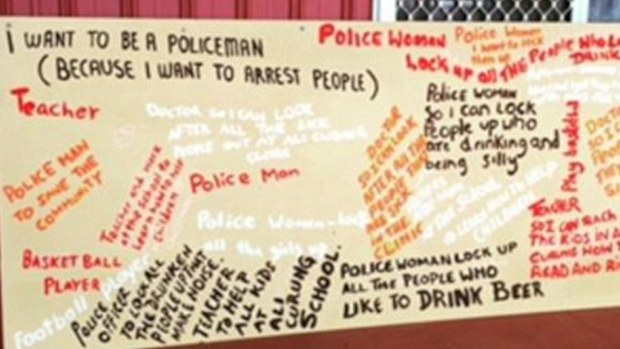 I WANT TO BE A POLICEMAN
(BECAUSE I WANT TO ARREST PEOPLE)
POLICE WOMAN
LOCK UP All THE PEOPLE WHO
DRINK
Police Woman
I want to
them up
Teacher
DOCTOR SO I CAN LOOK
AFTER ALL THE SICK
PEOPLE OUT AT ALI CURUNG
CLINIC
DOCTOR
SO I CAN LOOK
AFTER All THE
PEOPLE
IN THE
CLINIC
POLICE WOMAN
SO I CAN LOCK
PEOPLE UP WHO
are drinking and
being silly
POLICE MAN
TO SAVE THE
COMMUNITY
Teacher and work
at the school to
learn
children
Police Man
Police Women - lock
all the girls up
DOCTOR
SO I CAN
TEACHER
SO I CAN TEACH
THE KIDS IN A
CURUNG HOW T
READ AND
BASKETBALL
PLAYER
football player
POLICE
OFFICER
TO LOCK ALL
THE DRUNKEN
PEOPLE UP THAT
MAKE NOISE.
TEACHER
TO HELP
ALL KIDS
AT
ALI
CURUNG
SCHOOL.
POLICE WOMAN LOCK UP
ALL THE PEOPLE WHO
LIKE TO DRINK BEER